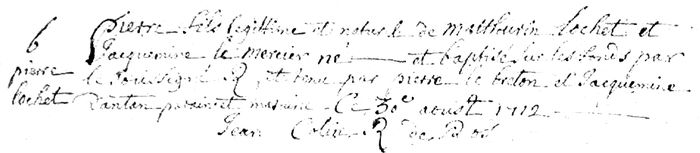 6
pierre
lochet
pierre fils legittime et naturel de Mathurin lochet et
Jacquemine le mercier né — et baptisé sur les fonds par
le soussigné R, et tenu par pierre le breton et Jacquemine
parain et maraine. Ce 30e aoust 1712
Jean Colin R de